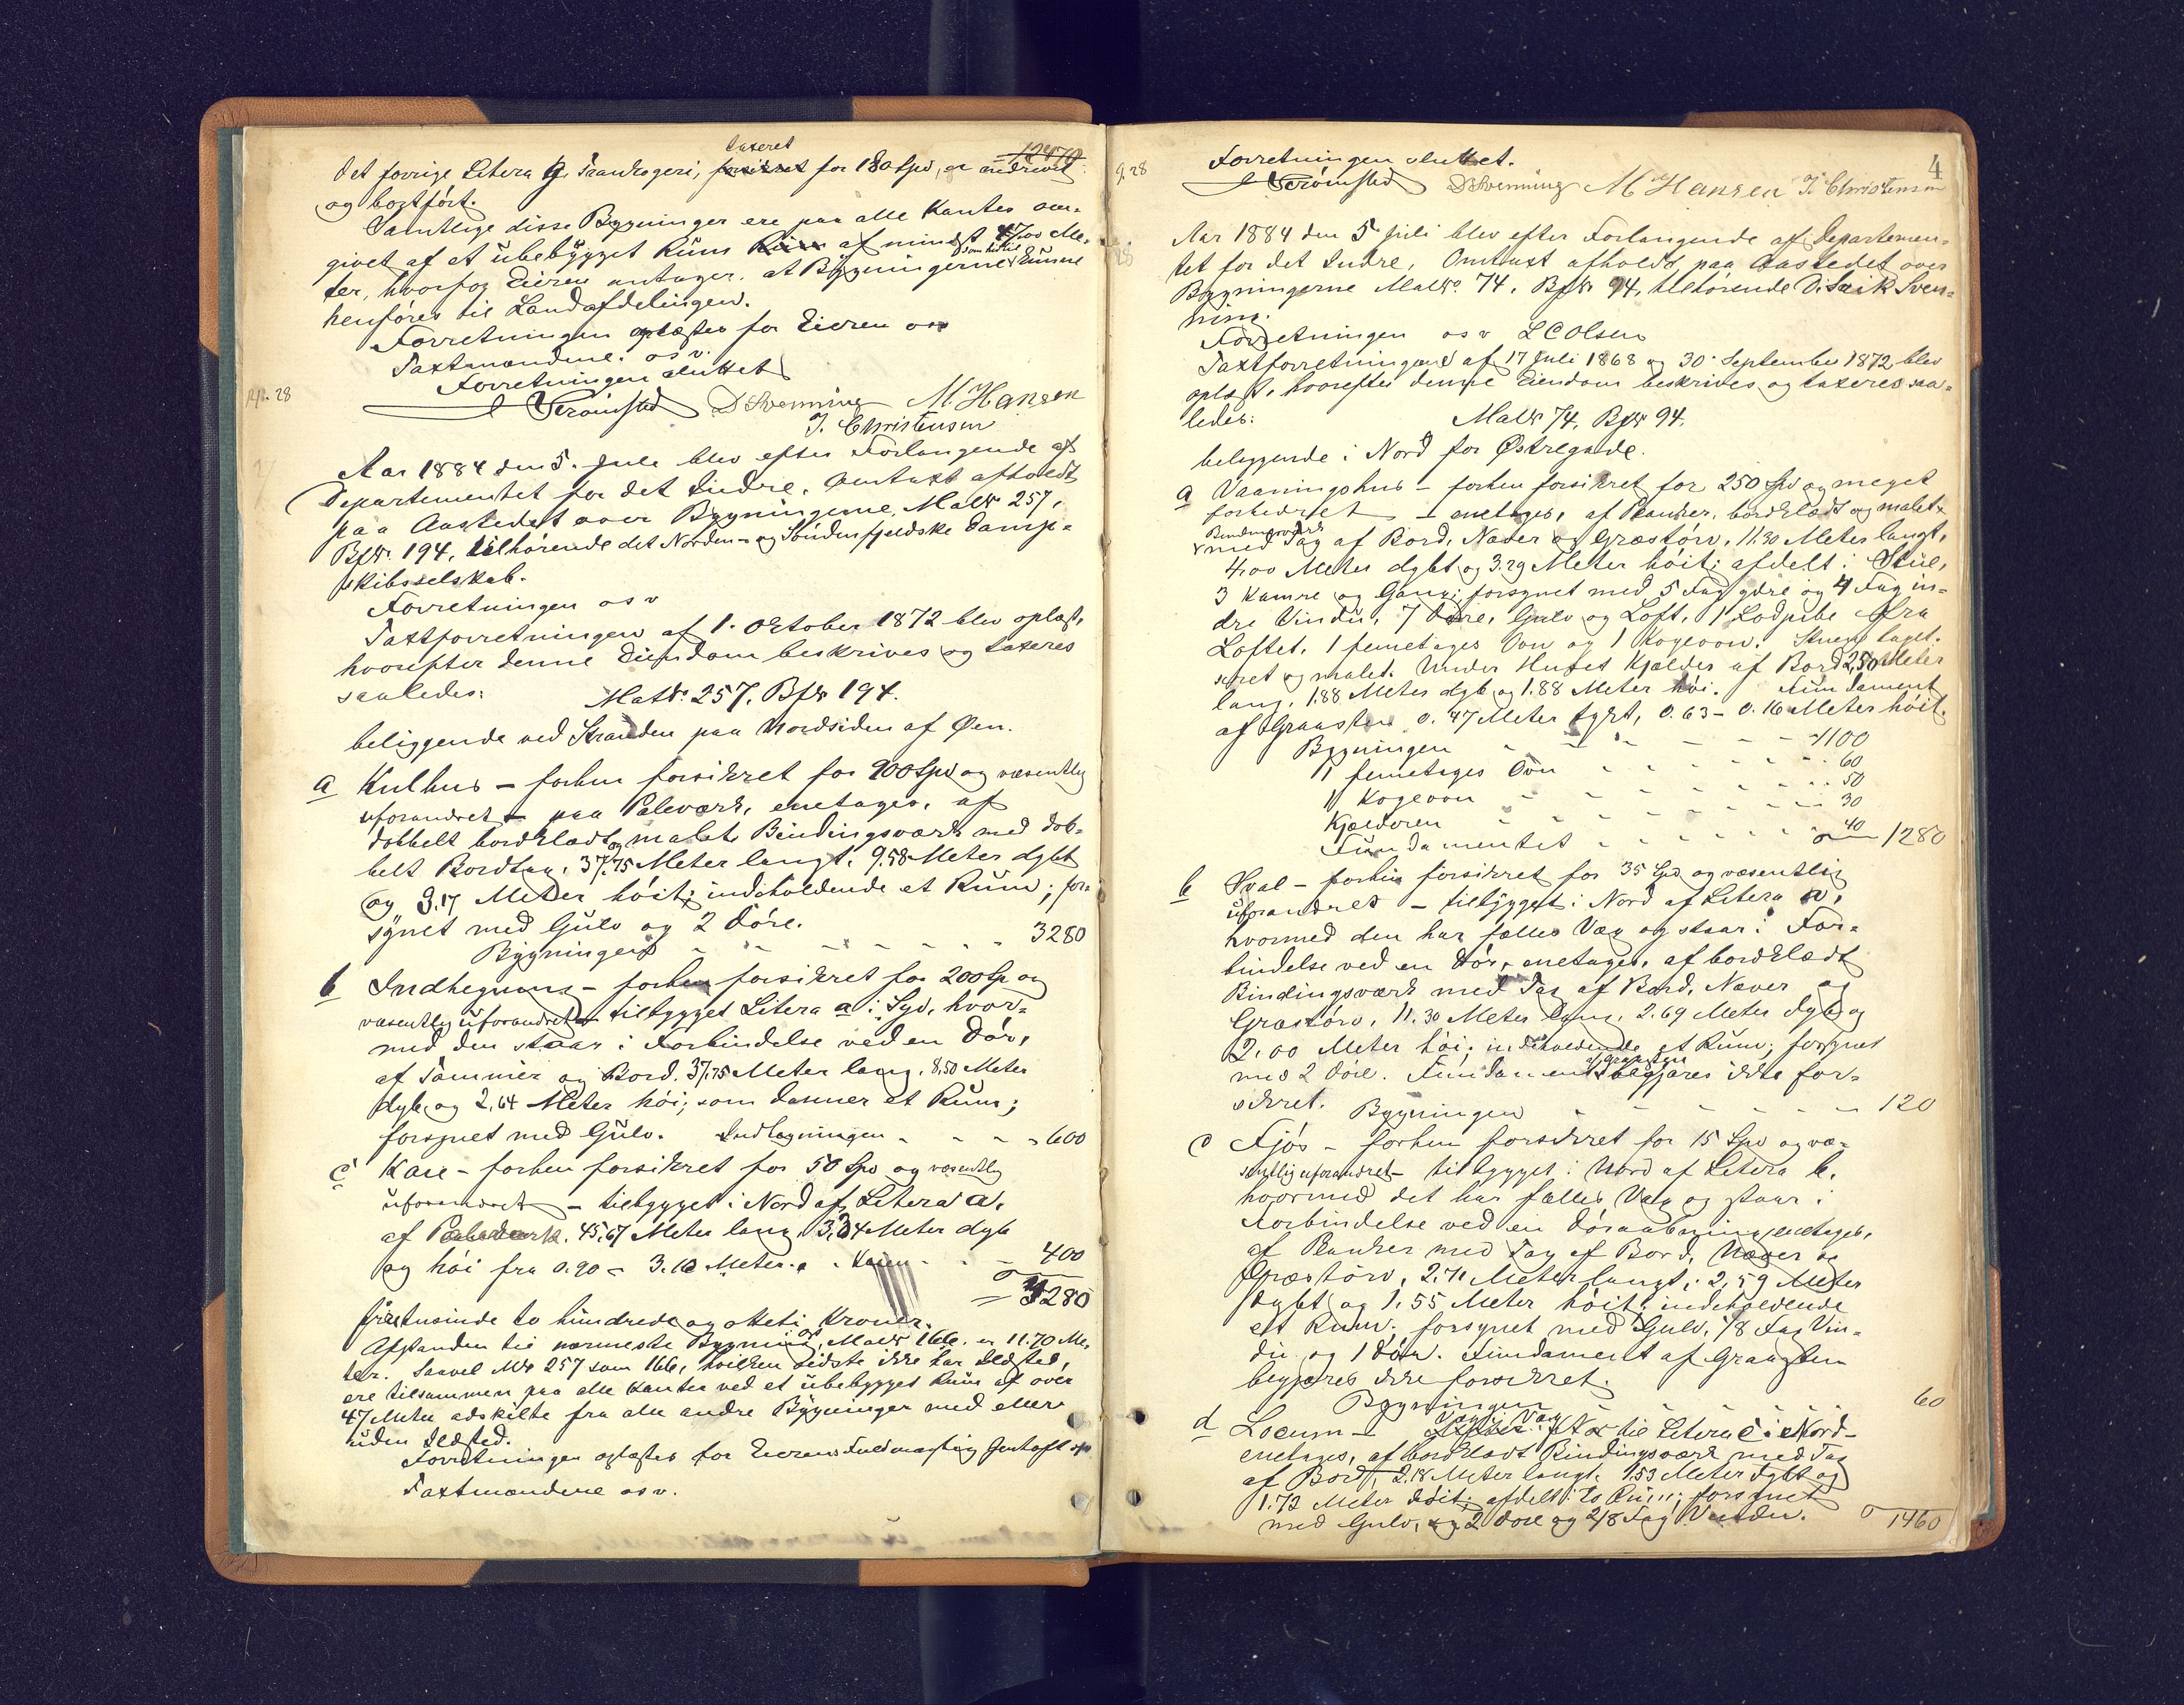 taxeret
12470
Det forrige Litera g, Trandrogeri, forsikret for 180 Spd, er nedrevet
og bortført.
Samtlige disse Bygninger ere paa alle Kanter om-
givet af et ubebygget Rum af mindst 47,00 Me-
ter, hvorfor Eieren antager, at Bygningerne som hidtil kunne
henføres til Landafdelingen.
Forretningen oplæstes for Eieren og
Taxtmændene. osv.
Forretningen sluttet
Strömsted D Svenning M Hansen
J. Christensen
Aar 1884 den 5. Juli blev efter Forlangende af
Departementet for det Indre, Omtaxt afholdt
paa Aastedet over Bygningerne, Matr 257,
Bfr. 194, tilhørende det Norden- og Søndenfjeldske Damp-
skibsselskab.
Forretningen osv
Taxtforretningen af 1. Oktober 1872 blev oplæst,
hvorefter denne Eiendom beskrives og taxeres
saaledes:
Matr. 257, Bfr 194.
beliggende ved Stranden paa Nordsiden af Øen.
a Kulhus – forhen forsikret for 900 Spd og væsentlig
uforandret – paa Peleværk, enetages, af
dobbelt bordklædt og malet Bindingsværk med dob-
belt Bordtag, 37,75 Meter langt, 9.58 Meter dybt
og 3.17 Meter høit; indeholdende et Rum; for-
synet med Gulv og 2 Døre.
Bygningen - - - - - - 3280
b Indhegning – forhen forsikret for 200 Sp og
væsentlig uforandret – tilbygget Litera a i Syd, hvor-
med den staar i Forbindelse ved en Dør,
af Tømmer og Bord. 37.75 Meter lang, 8.50 Meter
dyb, og 2,64 Meter høi; som danner et Rum;
forsynet med Gulv. Indhegningen - - - - 600
c Kaie – forhen forsikret for 50 Spd og væsentlig
uforandret – tilbygget i Nord af Litera a,
af Peleværk. 45,67 Meter lang, 3,34 Meter dyb
og høi fra 0.90 – 3.10 Meter. Kaien - - - 400
4280
firetusinde to hundrede og otteti Kroner.
Afstanden til nærmeste Bygning, Matr 166. er 11.70 Me-
ter. Saavel Mr 257 som 166, hvilken sidste ikke har Ildsted,
ere tilsammen paa alle Kanter ved et ubebygget Rum af over
47 Meter adskilte fra alle andre Bygninger med eller
uden Ildsted.
Forretningen oplæstes for Eierens Fuldmægtig
Taxtmændene osv.
4
Forretningen sluttet.
Strömsted D Svenning M Hansen J. Christensen
Aar 1884 den 5 Juli blev efter Forlangende af Departemen-
tet for det Indre, Omtaxt afholdt paa Aastedet over
Bygningerne Matr. 74, Bfr 94, tilhørende D. Isaik Sven-
ning.
Forretningen osv L C Olsen
Taxtforretningen af 17 Juli 1868 og 30 September 1872 blev
oplæst, hvorefter denne Eiendom beskrives og taxeres saa-
ledes: Matr 74, Bfr 94.
beliggende i Nord for Østregade.
a Vaaningshus – forhen forsikret for 250 Spd og meget
forbedret – enetages, af Planker, bordklædt og malet
Bindingsværk
med Tag af Bord, Næver og Græstørv, 11.30 Meter langt,
4.00 Meter dybt og 3.29 Meter høit; afdelt i Stue,
3 Kamre og Gang; forsynet med 5 Fag ydre og 4 Fag in-
dre Vindu, 7 Døre, Gulv og Loft, 1 Lodpibe fra
Loftet, 1 femetages Ovn og 1 Kogeovn. Stuen tapet-
seret og malet. Under Huset Kjælder af Bord 2,50 Meter
lang, 1.88 Meter dyb og 1.88 Meter høi. Fundament
af Graasten 0.47 Meter tykt, 0.63 – 0.16 Meter høit.
Bygningen - - - - - 1100
1 femetages Ovn - - - - 60
1 Kogeovn - - - - - 50
Kjælderen - - - - - 30
Fundamentet - - - - - 40 1280
b Sval – forhen forsikret for 35 Spd og væsentlig
uforandret – tilbygget i Nord af Litera a,
hvormed den har fælles Væg og staar i For-
bindelse ved en Dør, enetages, af bordklædt
Bindingsværk med Tag af Bord, Næver og
Græstørv, 11.30 Meter lang, 2.69 Meter dyb og
2.00 Meter høi; indeholdende et Rum; forsynet
med 2 Døre. Fundament af Graasten begjæres ikke for-
sikret. Bygningen - - - - - 120
c Fjøs – forhen forsikret for 15 Spd og væ-
sentlig uforandret – tilbygget i Nord af Litera b,
hvormed det har fælles Væg og staar i
Forbindelse ved en Døraabning, enetages,
af Planker med Tag af Bord, Næver og
Græstørv, 2.71 Meter langt, 2,59 Meter
dybt og 1,55 Meter høit; indeholdende
et Rum; forsynet med Gulv, 1/8 Fag Vin-
du og 1 Dør. Fundament af Graasten
begjæres ikke forsikret.
Bygningen - - - - 60
d Locum – Væg i Væg til Litera c i Nord –
enetages, af bordklædt Bindingsværk med Tag
af Bord, 2.18 Meter langt, 1.53 Meter dybt og
1.73 Meter høit; afdelt i to Rum; forsynet
med Gulv, 2 Døre og 2/8 Fag Vindu. 1460